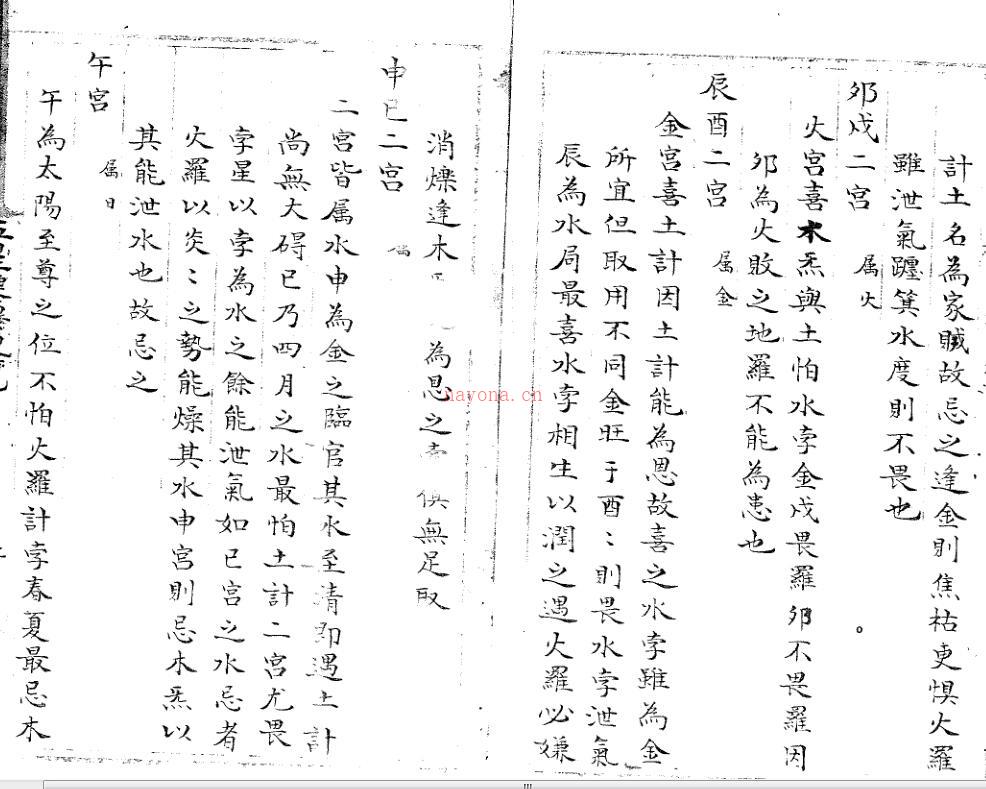 計土名為家賊故忌之逢金則焦枯更惧火羅
雖泄氣躔箕水度則不畏也
夘戌二宮 属火
火宮喜木炁與土怕水孛金戌畏羅夘不畏羅因
夘為火敗之地羅不能為患也
辰酉二宮 属金
金宮喜土計因土計能為恩故喜之水孛雖為金
所宜但取用不同金旺于酉〻則畏水孛泄氣
辰為水局最喜水孛相生以潤之遇火羅必嫌
消爍逢木 為恩之 俱無足取
申巳二宮
二宮皆属水申為金之臨官其水至清即遇土計
尚無大碍巳乃四月之水最怕土計二宮尤畏
孛星以孛為水之餘能泄氣如巳宮之水忌者
火羅以炎〻之勢能燥其水申宮則忌木炁以
其能泄水也故忌之
午宮 属日
午為太陽至尊之位不怕火羅計孛春夏最忌木
nayona.cn